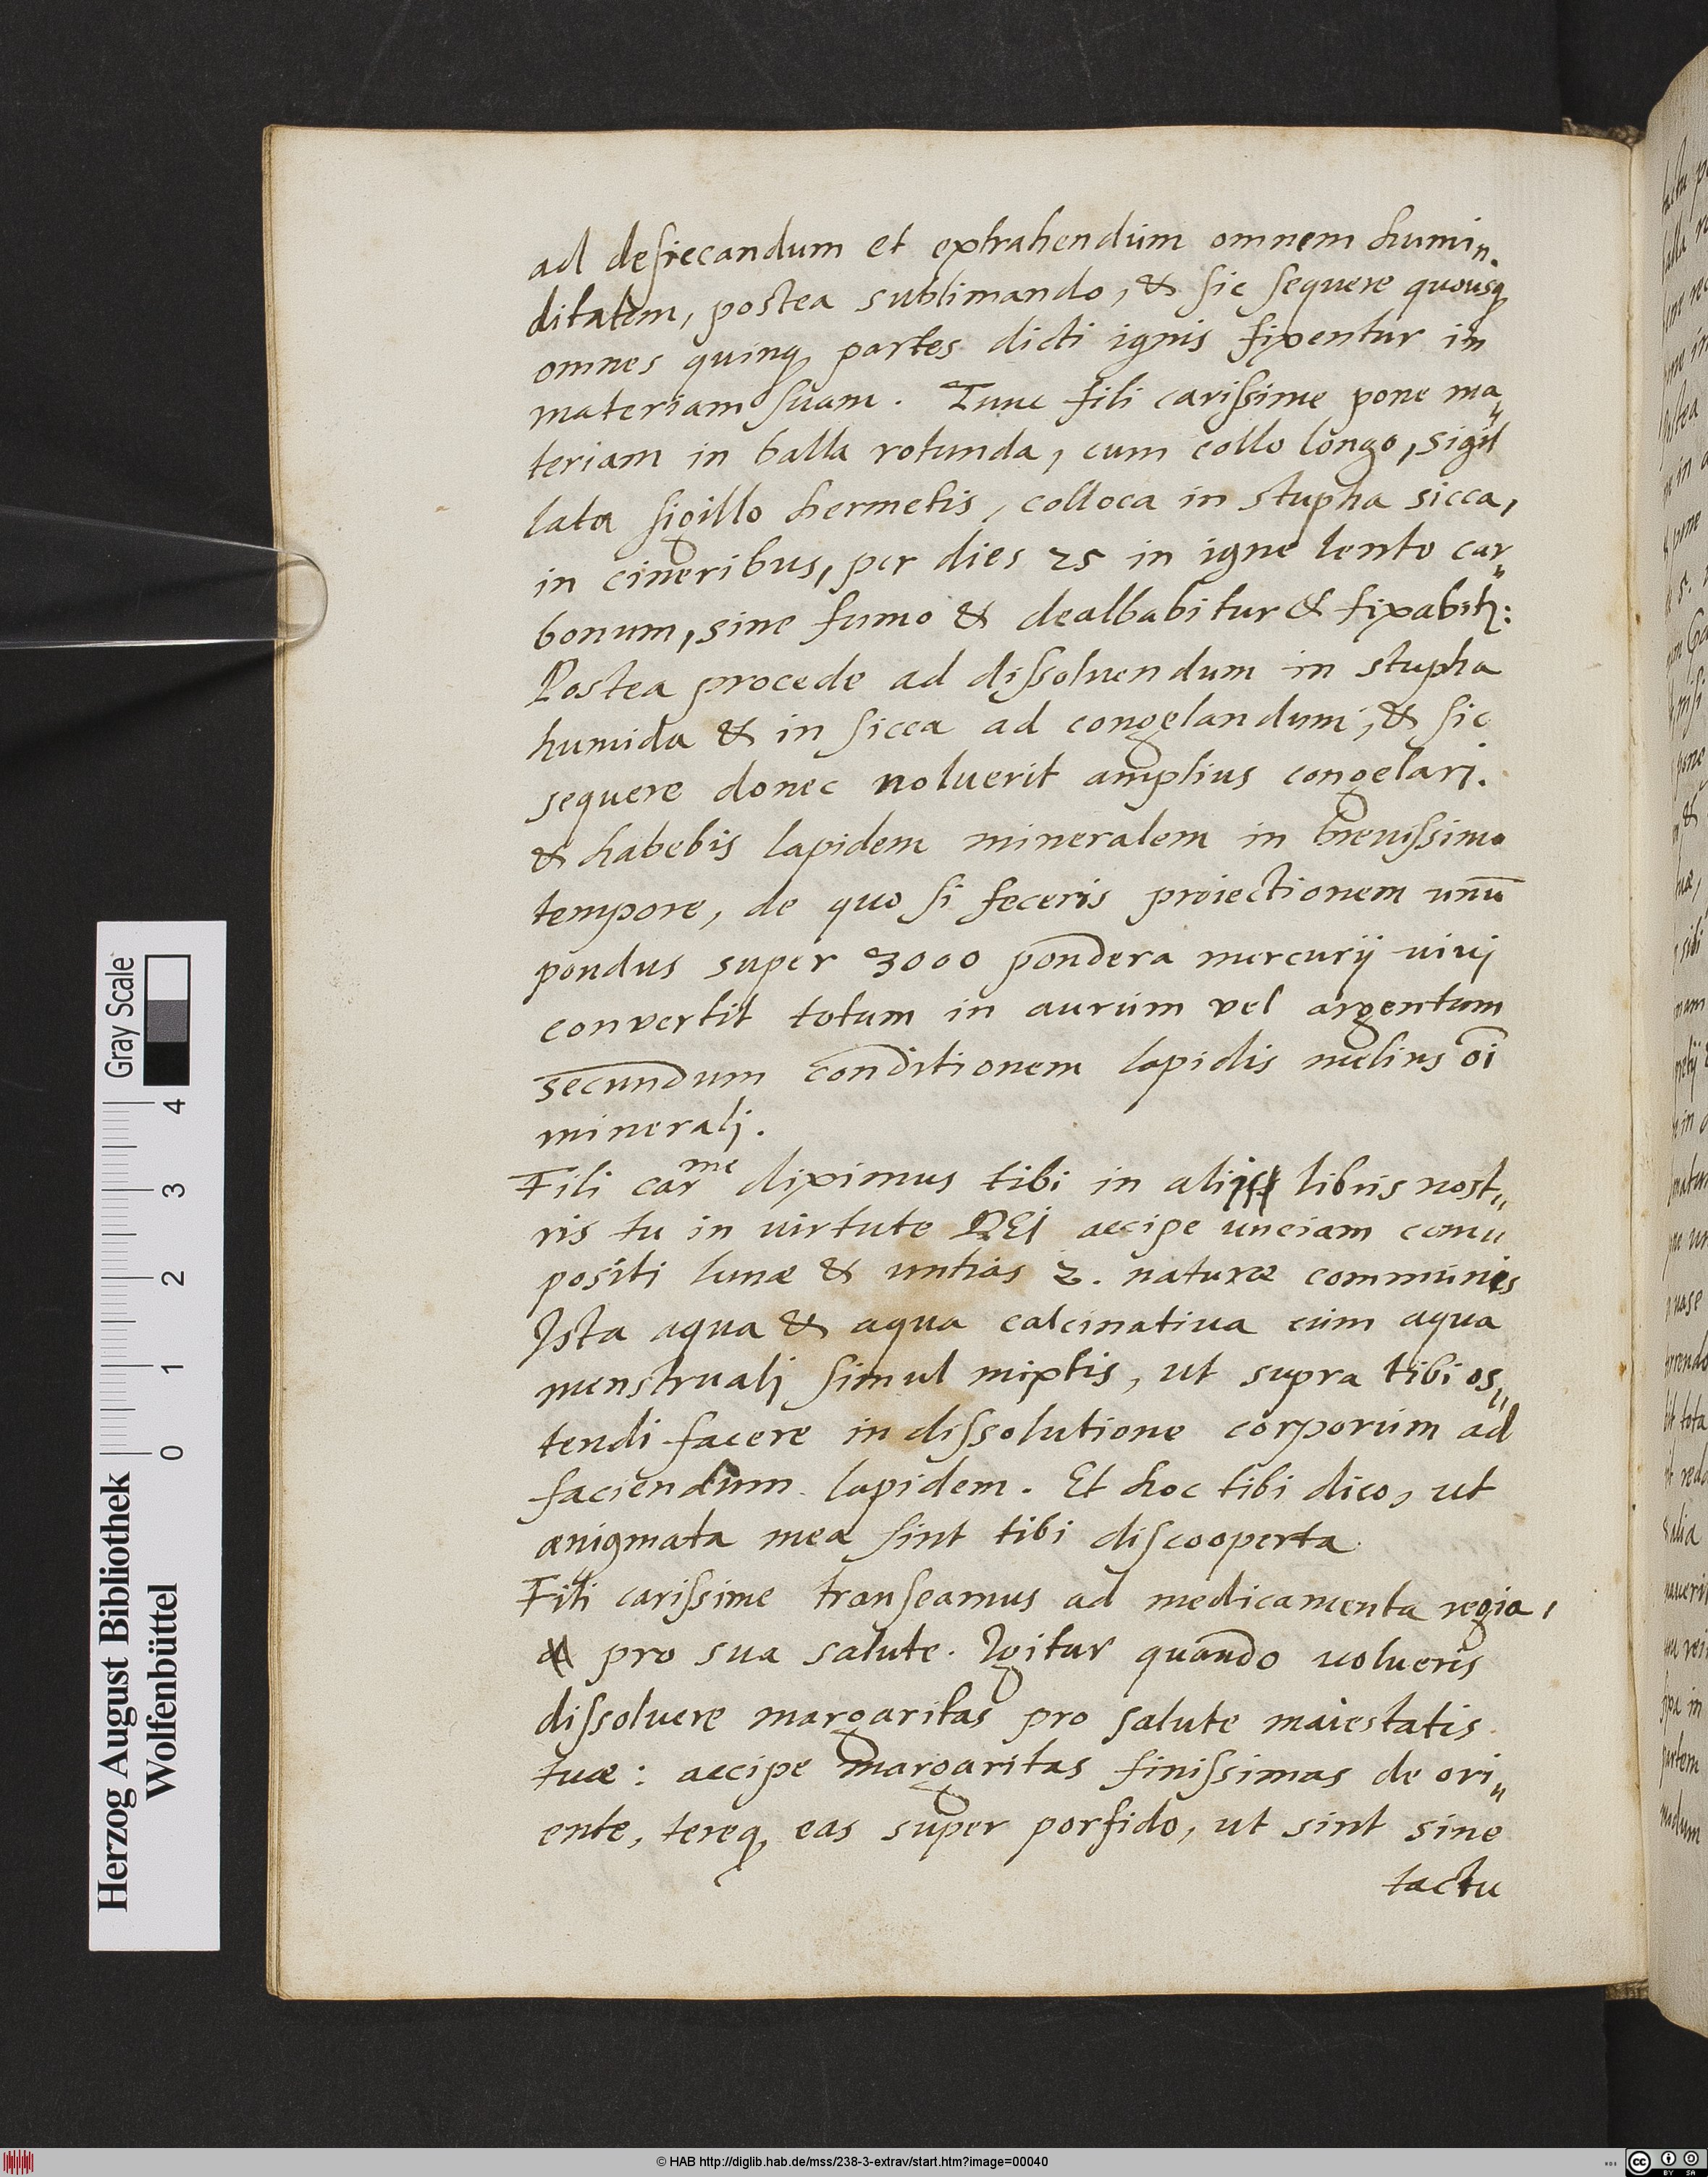 ad desiccandum et extrahendum omnem humin.
ditatem, postea sublimando, & sic sequere quousq
omnes quinq partes dicti ignis fixentur in
materiam suam. Tunc fili carissime pone ma„
teriam in balla rotunda, cum collo longo, sigil
lata sigillo hermetis, colloca in stupha sicca,
in cineribus, per dies 25 in igne lento car„
bonum, sine fumo & dealbabitur & fixabitr:
Postea procede ad dissoluendum in stupha
humida & in sicca ad congelandum, & sic
sequere donec noluerit amplius congelarj.
& habebis lapidem mineralem in breuissimo
tempore, de quo si feceris proiectionem unū
pondus super 3000 pondera mercurij uiuj
convertit totum in aurum vel argentum
secundum conditionem lapidis melius oi̅
mineralj.
Fili carme diximus tibi in alijs libris nost„
ris tu in uirtute DEI accipe unciam com„
positi lunæ & untias 2. naturæ communis
Ista aqua & aqua calcinatiua cum aqua
menstrualj simul mixtis, ut supra tibi os„
tendi facere in dissolutione corporum ad
faciendum lapidem. Et hoc tibi dico, ut
ænigmata mea sint tibi discooperta.
Fili carissime transeamus ad medicamenta regia,
& pro sua salute. Igitur quando uolueris
dissoluere margaritas pro salute maiestatis
tuæ: accipe margaritas finissimas de ori„
ente, tereq eas super porfido, ut sint sine
tactu
Gray Scale
4 3 2 1 0
Herzog August Bibliothek
Wolfenbüttel
© HAB http://diglib.hab.de/mss/238-3-extrav/start.htm?image=00040